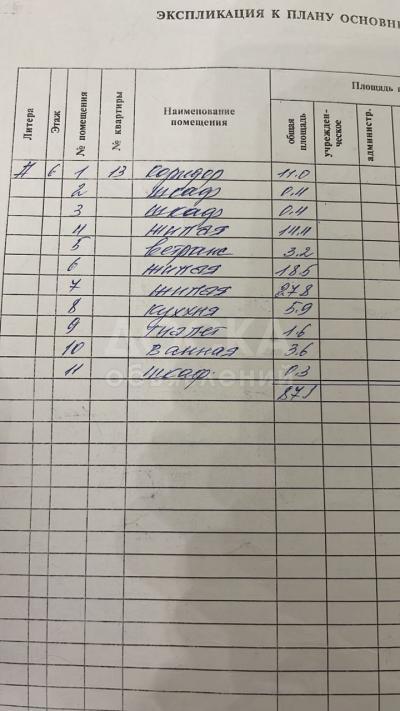 ЭКСПЛИКАЦИЯ К ПЛАНУ ОСНОВН
Площадь
Литера Этаж № помещения № квартиры Наименование помещения общая площадь учрежденческое администр.
А 6 1 13 коридор 11.0
2 шкаф 0.4
3 шкаф 0.4
4 жилая 14.4
5 Встроен 3.2
6 жилая 18.5
7 жилая 27.8
8 кухня 5.9
9 туалет 1.6
10 ванная 3.6
11 шкаф. 0.3
87.1